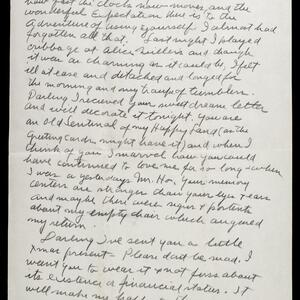 how fast the clocks now moves, and the
wonderful Expectation there is to the
Adventure of being yourself. I almost had
forgotten all that. Last night I played
cribbage at Alice and though
it was as charming as it could be, I felt
ill at ease and detached and longed for
the morning and my troup of tumblers.
Darling I received your sweet dream letter
and will decorate it tonight. You are
an old Sentinal of my Happy Land (as the
Greeting Cards might have it) and when I
think of you I marvel how you could
have continued to love me for so long - when
I was a yesterdays Mr. Hon. Your memory
centers are stronger than your eyes + ears
and maybe there were signs + portents
about my empty chair which augured
my return.
Darling I've sent you a little
Xmas present - Please dont be mad. I
want you to wear it + not fuss about
its existence or financial status. It
will make my